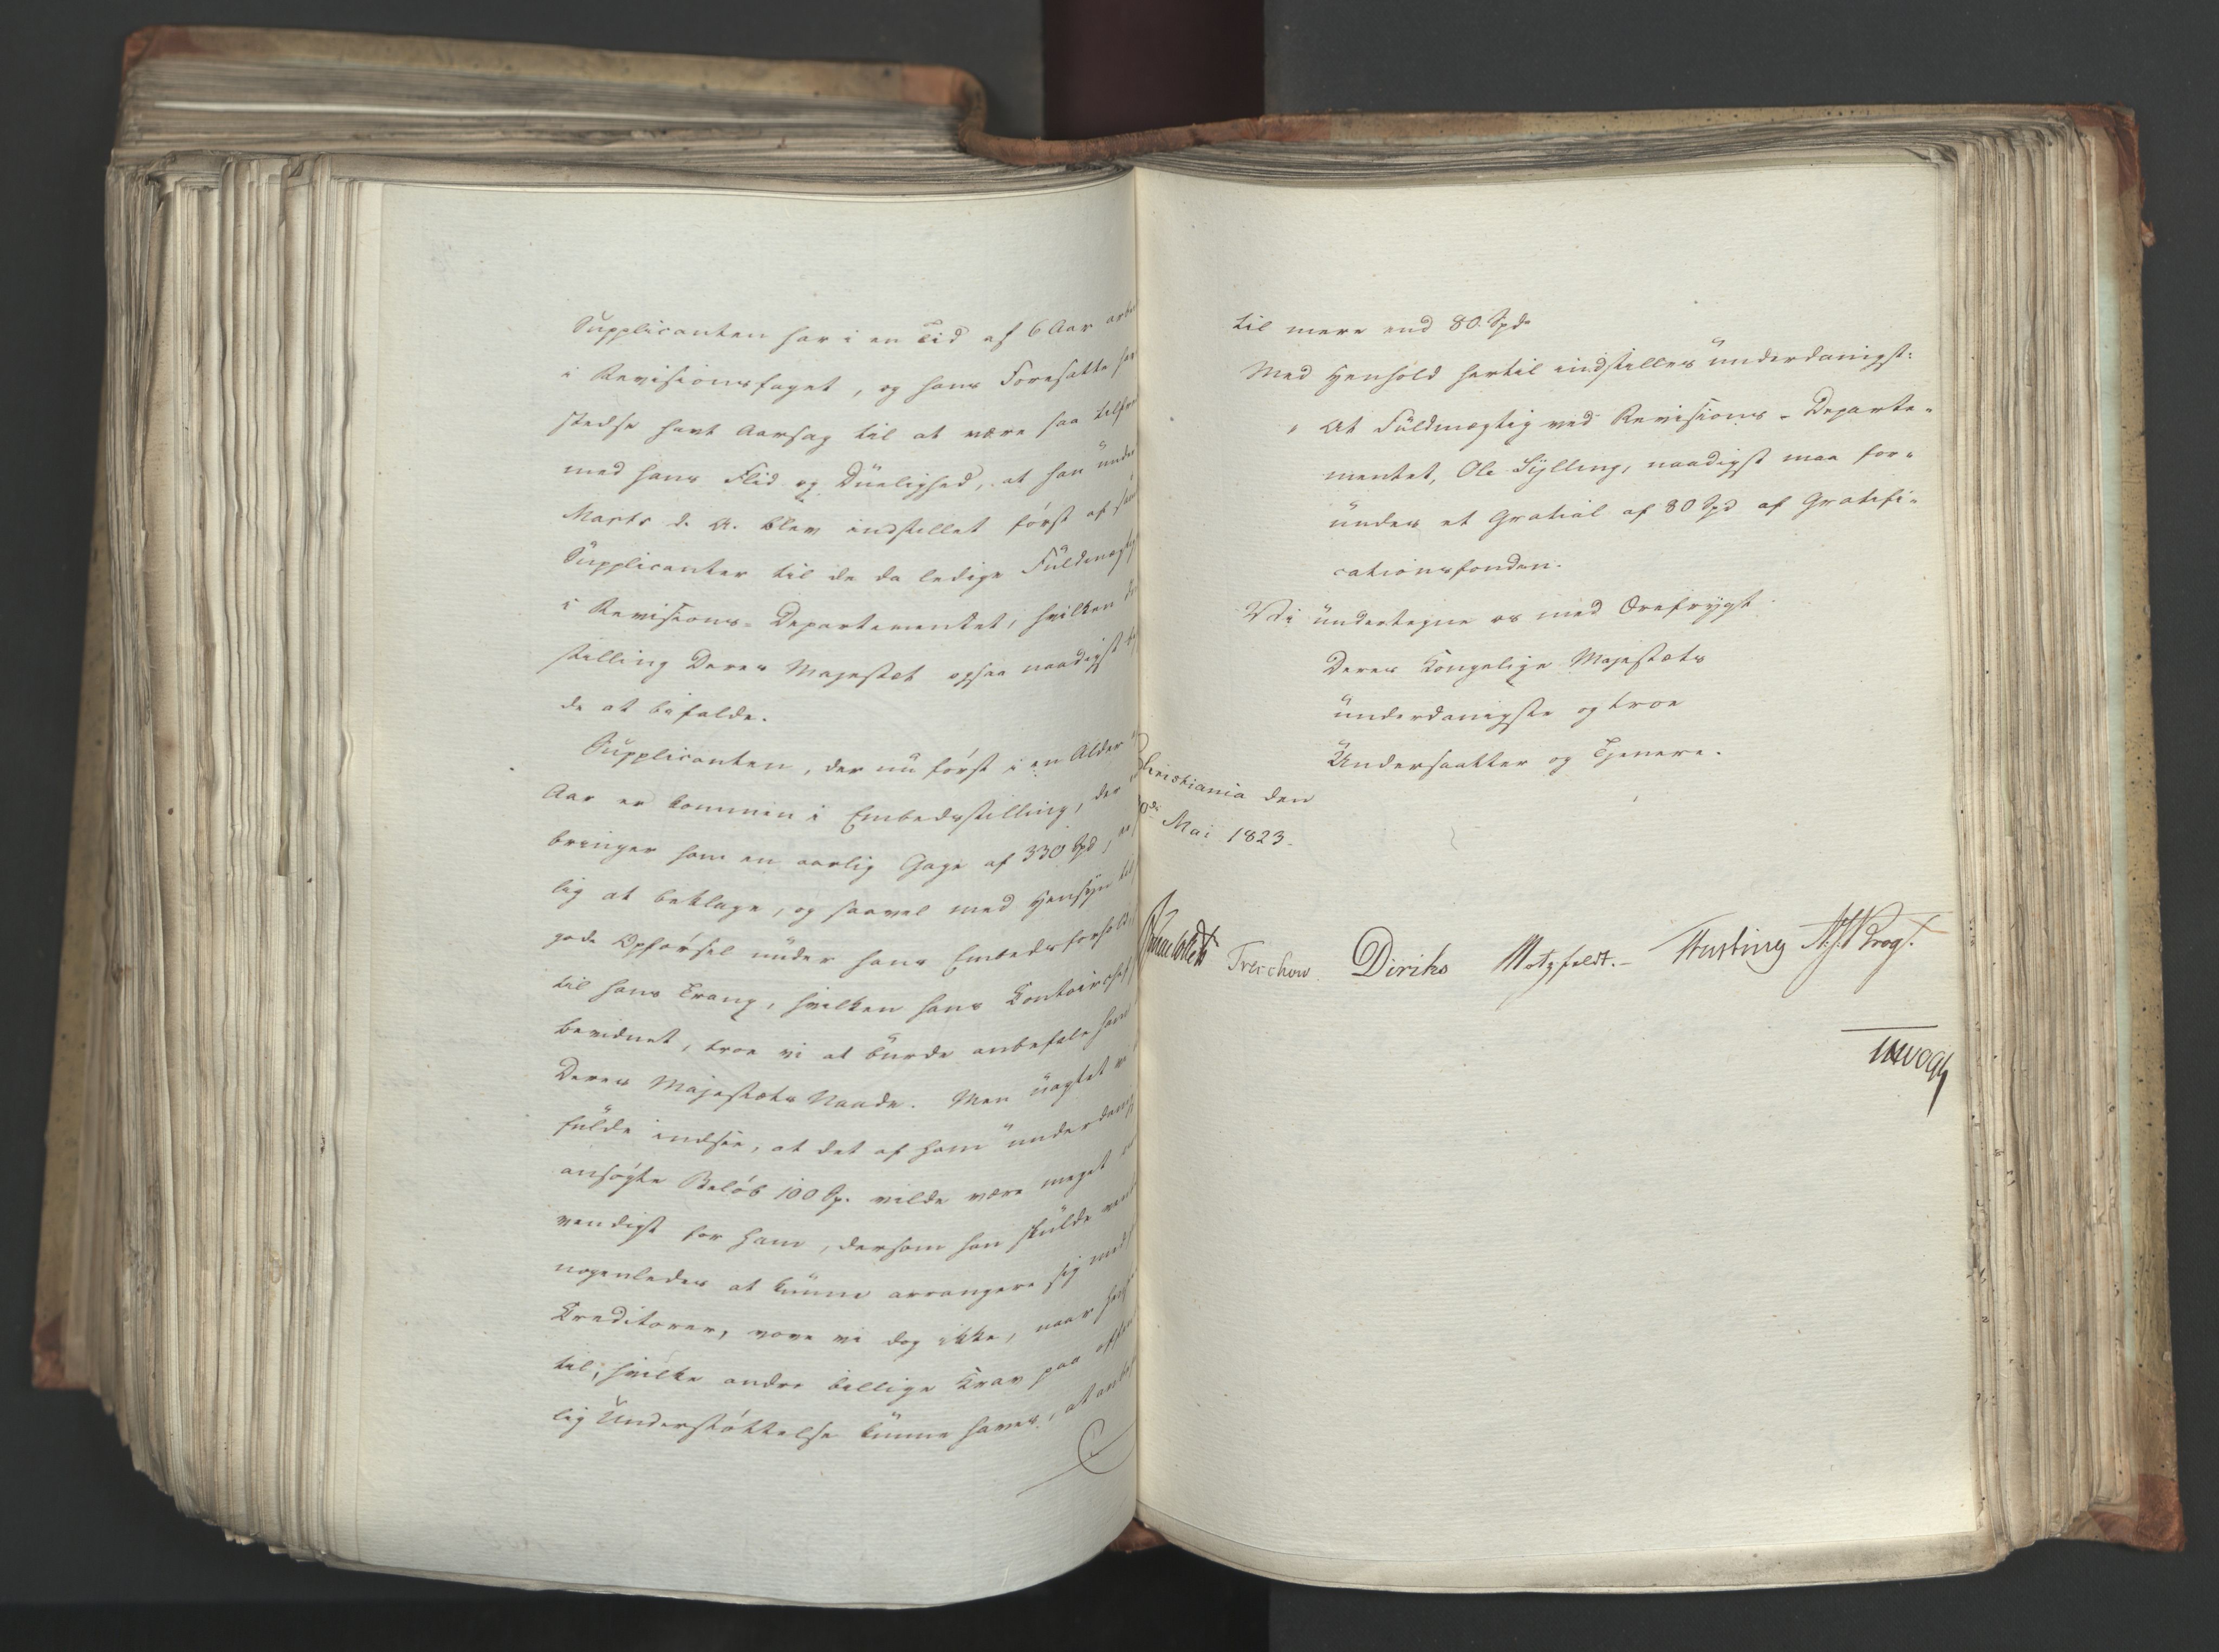 Supplicanten har i en Tid af 6 Aar
i Revisionsfaget, og hans Foresatte
stedse havt Aarsag til at være saa
med hans Flid og Duelighed, at han
Marts d. A. blev indstillet først af
Supplicanter til de da ledige
i Revisions-Departementet, hvilken
stilling Deres Majestæt ogsaa naadigst
de at bifalde.
Supplicanten, der nu først i en Alder
Aar er kommen i Embedsstilling, der
bringer ham en aarlig Gage af 330 Spd,
lig at beklage, og saavel med Hensyn til
gode Opførsel under hans
til hans Trang, hvilken hans
bevidnet, troe vi at burde anbefale ham
Deres Majestæts Naade. Men uagtet vi
fulde indsee, at det af ham
ansøgte Beløb 100 Sp. vilde være meget
vendigt for ham, dersom han skulde
nogenledes at kunne arrangere sig med
Creditorer, vove vi dog ikke, naar
til, hvilke andre billige Krav paa
lig Understøttelse kunne haves, at
til mere end 80 Spd.
Med Henhold hertil indstilles underdanigst:
At Fuldmægtig ved Revisions-Departe-
mentet, Ole Sylling, naadigst maa for-
undes et Gratial af 80 Spd af Gratifi-
cationsfonden.
Vi undertegne os med Ærefrygt
Deres Kongelige Majestæts
underdanigste og troe
Undersaatter og Tjenere.
Christiania den
Mai 1823.
Treschow Diriks Motzfeldt. Fasting